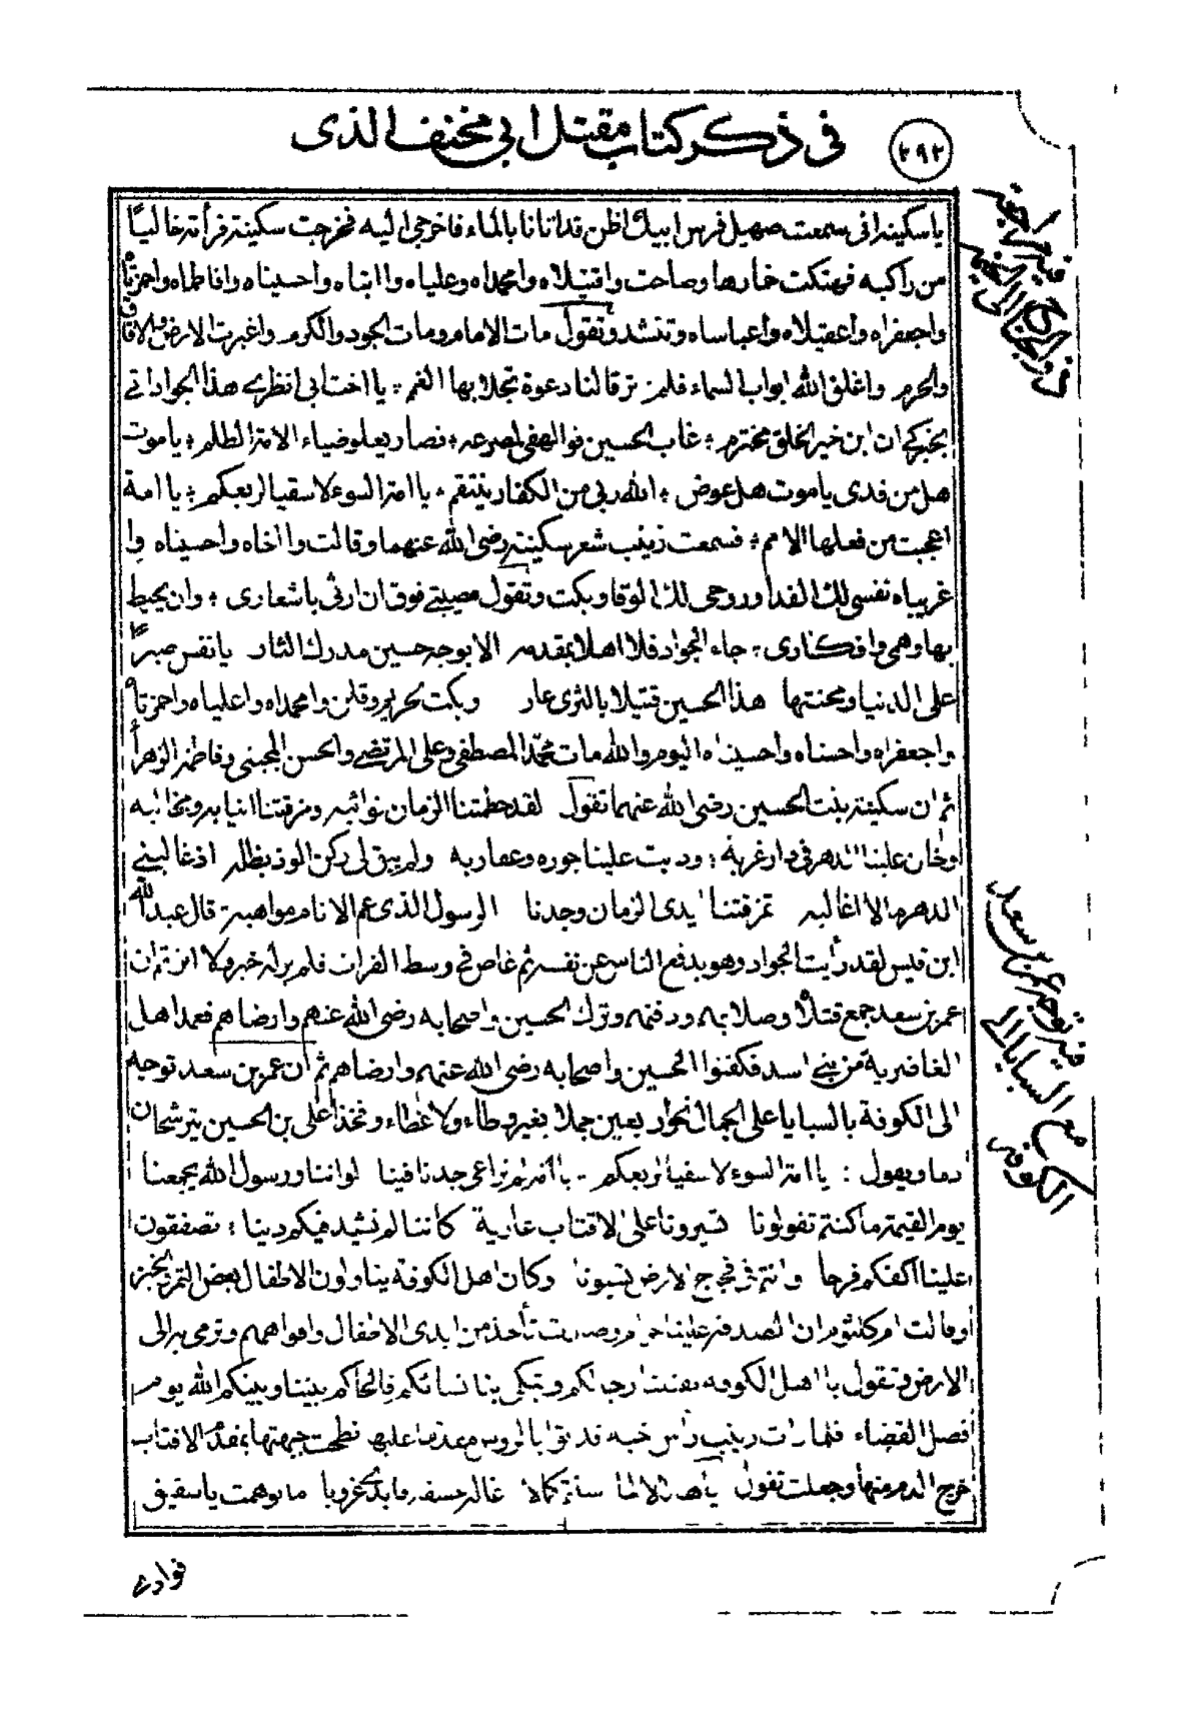 في ذكر كتاب مقتل ابي مخنف الذى
٢٩٢
يا سكينة انى سمعت صهيل فرس ابيك اظن قد اتانا بالماء فاخرجى اليه فخرجت سكينة فرأته خاليًا
من راكبه فهتكت خمارها وصاحت واقتيلاه وامحمداه وعلياه وا ابتاه واحسيناه وافاطماه واحمزتاه
واجعفراه واعقيلاه واعباساه وتنشد وتقول مات الامام ومات الجود والكرم واغبرت الارض والافاق
والحرم واغلق الله ابواب السماء فلم ترقا لنا دعوة تجلا بها الغم ؛ يا اختا بى انظرى هذا الجواد اتى
يخبركم ان ابن خير الخلق مخترم ؛ غاب الحسين فوا لهفى لمصرعه ؛ فصار يعلو ضياء الامة الظلم ؛ يا موت
هل من فدى يا موت هل عوض ؛ الله ربى من الكفار ينتقم ، يا امة السوء لا سقيا لربعكم ؛ يا امة
اعجبت من فعلها الامم ؛ فسمعت زينب شعر سكينة رضى الله عنهما وقالت وا اخاه واحسيناه وا
غريباه نفسى لك الفدا وروحى لك الوقا وبكت وتقول مصيبتى فوق ان ارثى باشعارى ؛ وان يحيط
بها وهمى وافكارى ؛ جاء الجواد فلا اهلا بمقدمه الا بوجه حسين مدرك الثار يا نفس صبرًا
على الدنيا ومحنتها هذا الحسين قتيلا بالثرى عار وبكت وقلن وامحمداه واعلياه واحمزتاه
واجعفراه واحسناه واحسيناه اليوم والله مات محمد المصطفى وعلى المرتضى والحسن المجتبى وفاطمة الزهرا
ثم ان سكينة بنت الحسين رضى الله عنهما تقول لقد حطمتنا الزمان نوائبه ومزقتنا انيابه ومخالبه
وخان علينا الدهر فى دار غربة ؛ ودبت علينا جوره وعقاربه ولم يبق لى ركن الوذ بظله اذ غالبنى
الدهر مالا اغالبه تمزقتنا ايدى الزمان وجدنا الرسول الذى عم الانام مواهبه قال عبد الله
ابن قيس لقد رأيت الجواد وهو يدفع الناس عن نفسه ثم غاص فى وسط الفرات فلم ير له خبر ولا اثر ثم ان
عمر بن سعد جمع قتلاه وصلا بهم ودفنهم وترك الحسين واصحابه رضى الله عنهم وارضاهم فعمد اهل
الغاضرية من بنى اسد فكفنوا الحسين واصحابه رضى الله عنهم وارضاهم ثم ان عمر بن سعد توجه
الى الكوفة بالسبايا على الجمال نحو اربعين جملا بغير وطاء ولا غطاء وفخذا على بن الحسين يترشحان
دما ويقول : يا امة السوء لا سقيا لربعكم - يا امة لم تراعى جدنا فينا لو اننا ورسول الله يجمعنا
يوم القيمة ما كنتم تقولونا تسيرونا على الاقتاب عارية كاننا لم نشيد فيكم دينا ؛ تصفقون
علينا اكفكم فرحا وانتم فى فجاج الارض تسبونا وكان اهل الكوفة يناولون الاطفال بعض التمر والخبز
وقالت ام كلثوم ان الصدقة علينا حرام وصارت تأخذ من ايدى الاطفال وافواههم وترمى به الى
الارض وتقول يا اهل الكوفة يقتلنا رجالكم وتبكى بنا نسائكم فالحاكم بيننا وبينكم الله يوم
فصل القضاء فلما رات زينب رأس اخيه قد اتوا بالرؤس مقدما عليها نطحت جبهتها بمقدم الاقتاب
خرج الدم منها وجعلت تقول يا هلالا لما ستتم كمالا غاله خسفه فابدى غروبا ما توهمت يا شقيق
فوادى
فيه توجه عمر بن سعد
مع السبايا الى
الكوفة